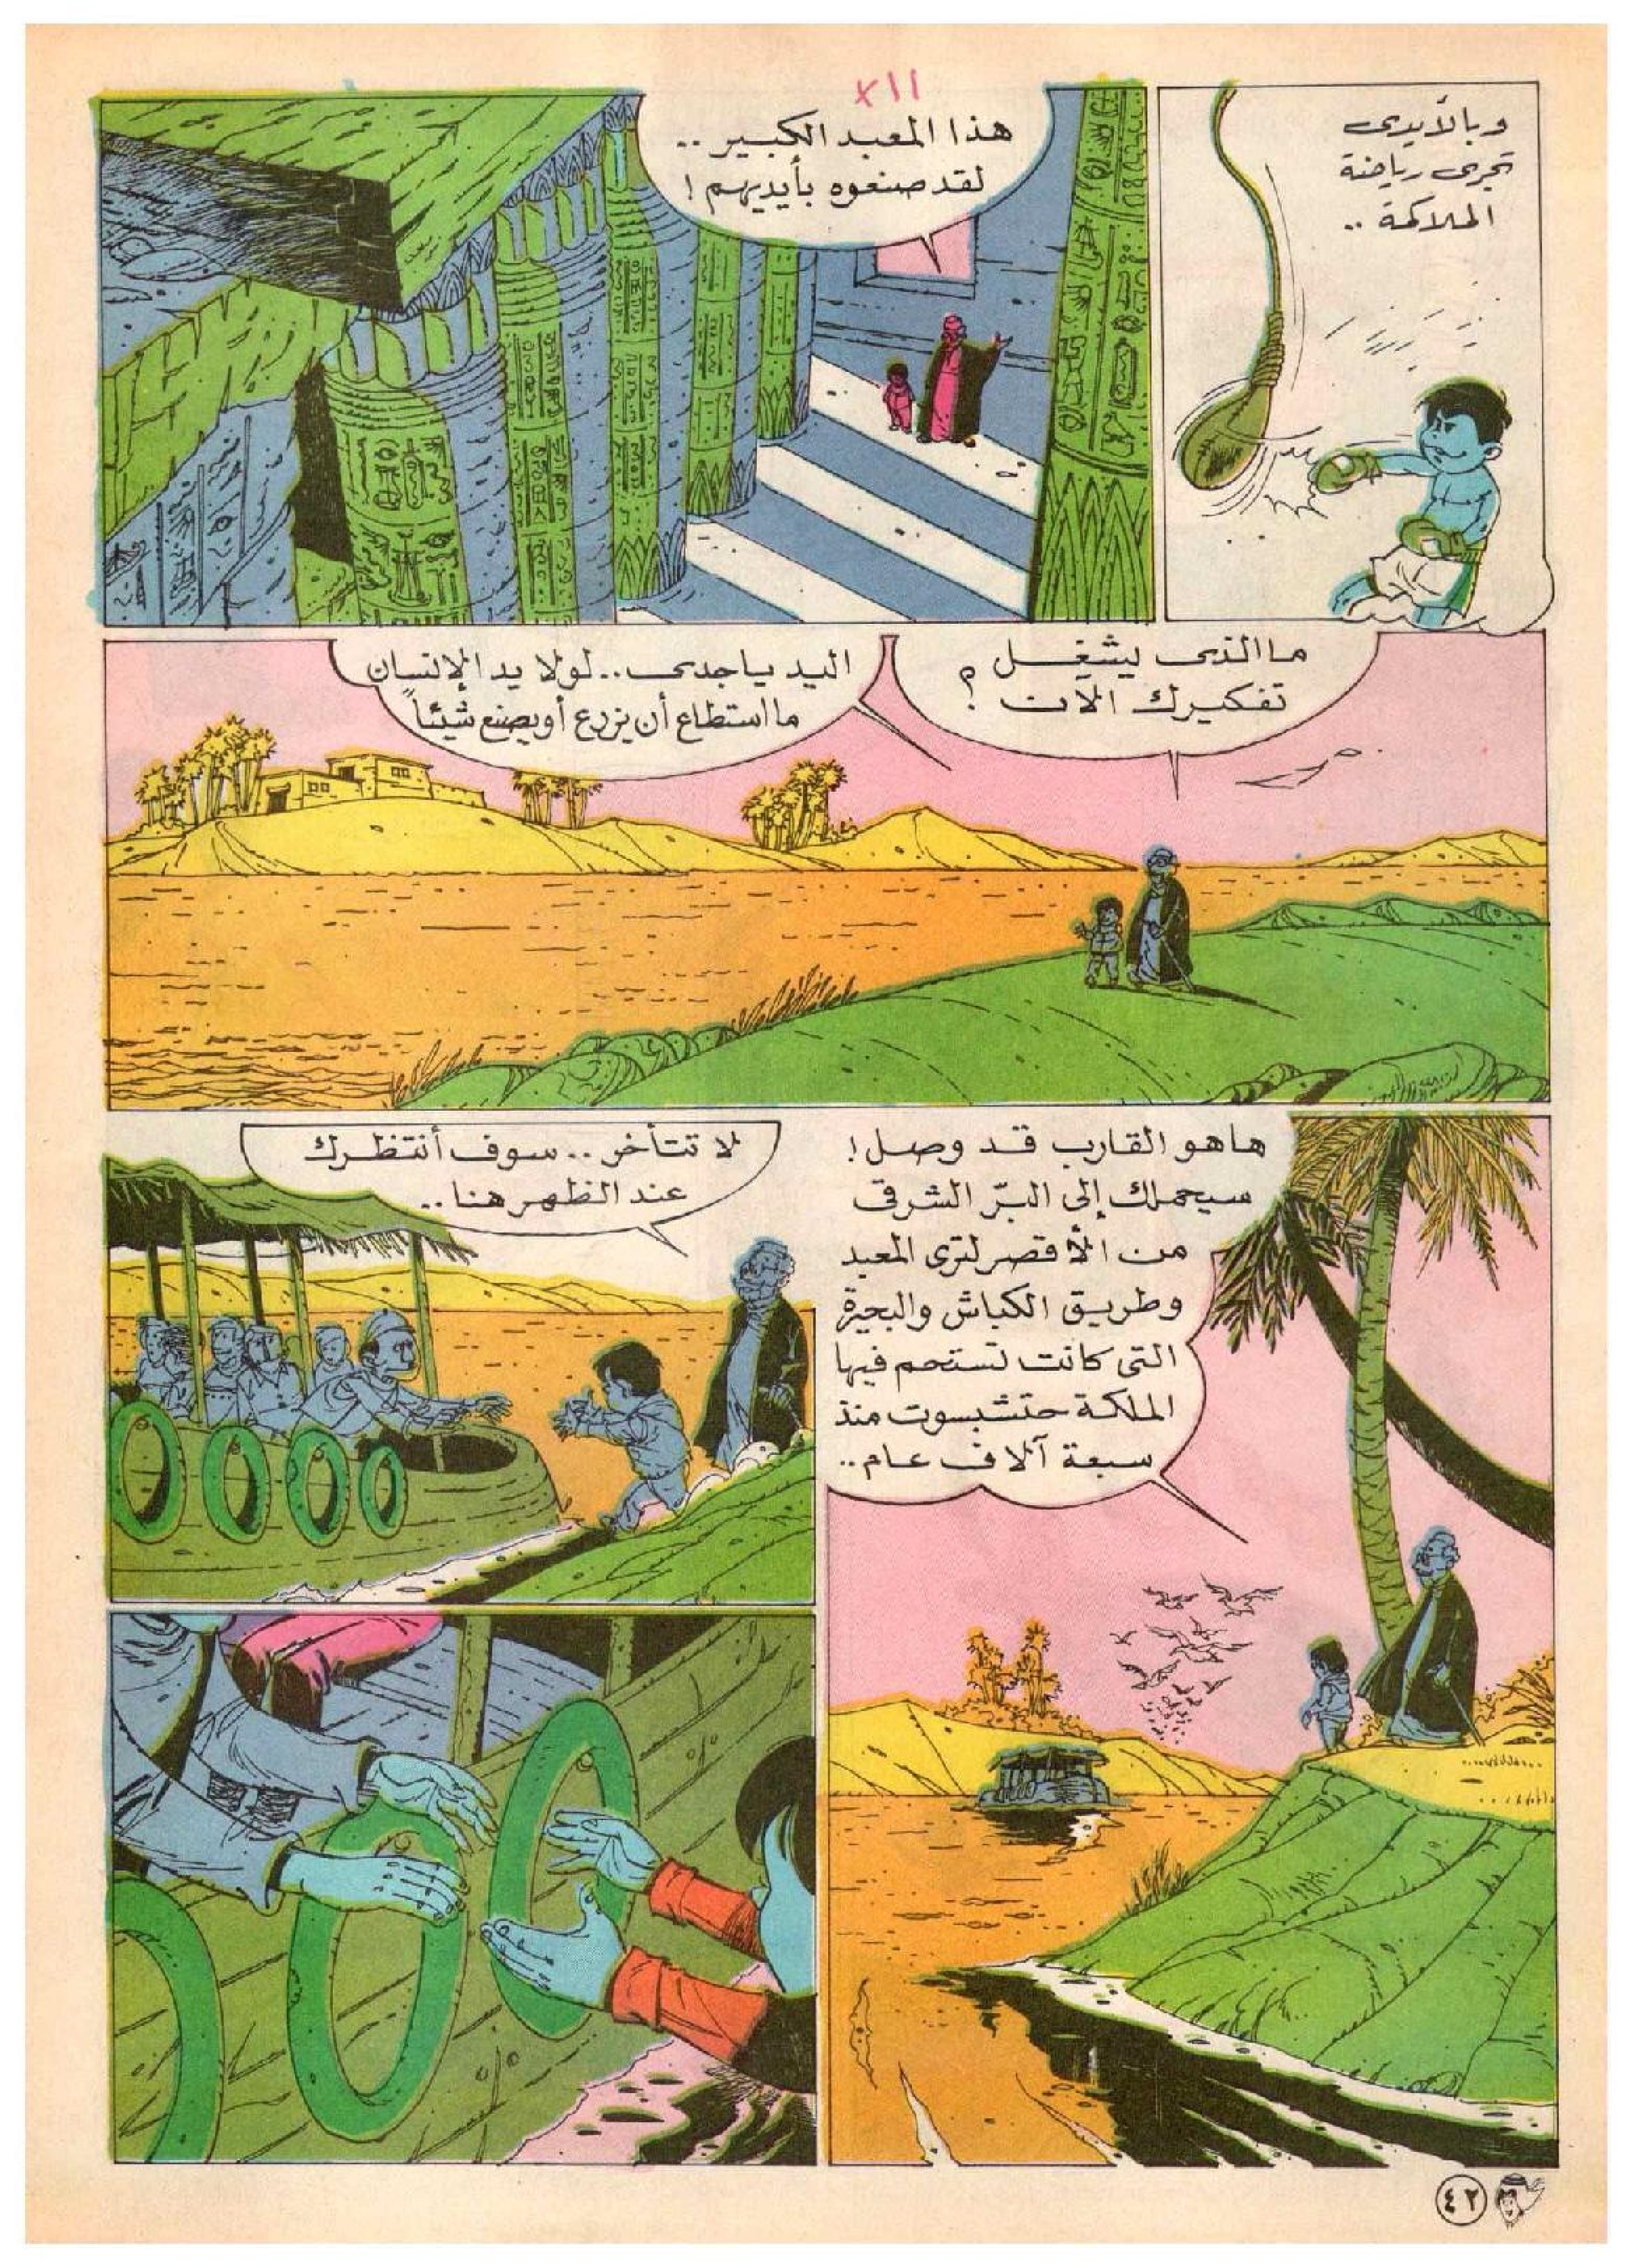 ×١١
وبالأيدى
تجرى رياضة
الملاكمة ..
هذا المعبد الكبير ..
لقد صنعوه بأيديهم !
ما الذى يشغل
تفكيرك الآن ؟
اليد ياجدى .. لولا يد الإنسان
ما استطاع أن يزرع أو يصنع شيئاً
هاهو القارب قد وصل !
سيحملك إلى البرّ الشرقى
من الأقصر لترى المعبد
وطريق الكباش والبحيرة
التى كانت تستحم فيها
الملكة حتشبسوت منذ
سبعة آلاف عام ..
لا تتأخر .. سوف أنتظرك
عند الظهر هنا ..
٤٢